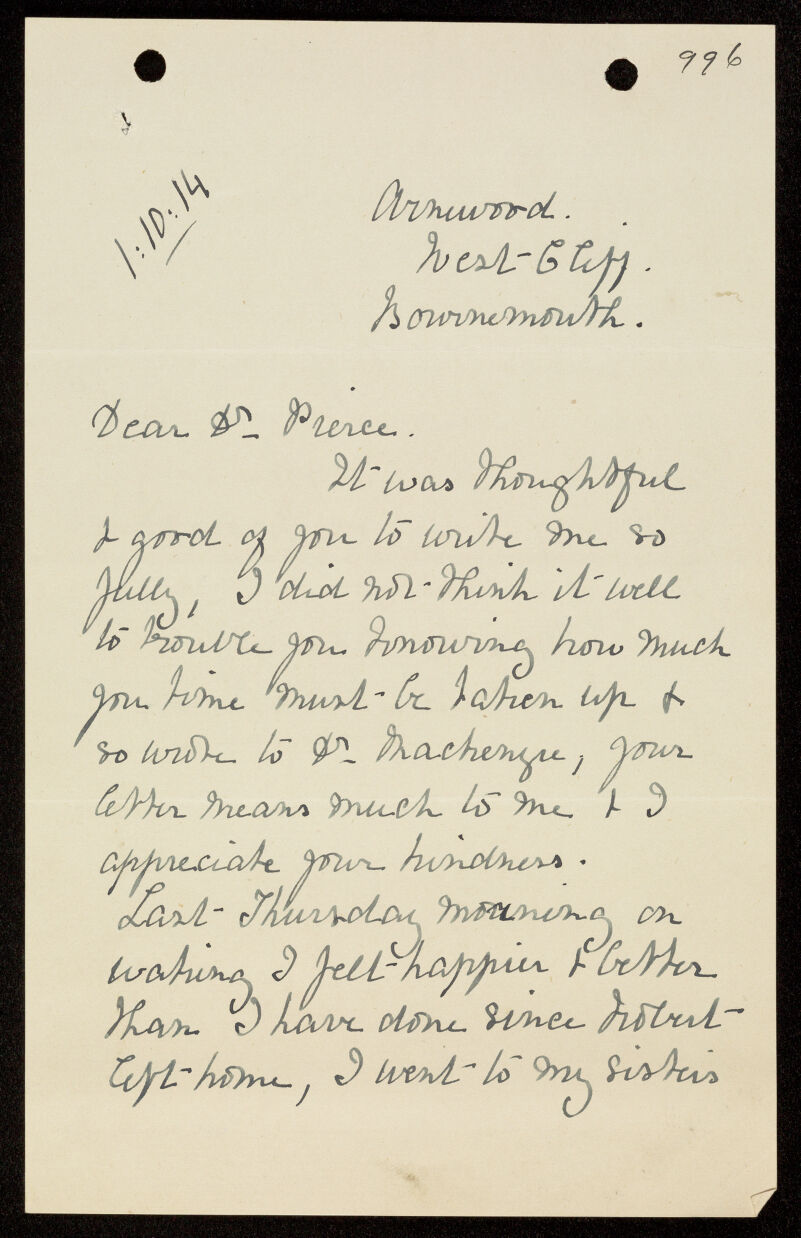 996
1:10:14
Arnewood.
West-Cliff.
Bournemouth.
Dear Dr Pierce.
It was thoughtful
& good of you to write me so
fully, I did not think it well
to trouble you knowing how much
you time must be taken up &
so wrote to Dr Mackenzie, your
letter means much to me & I
appreciate your kindness.
Last Thursday morning on
waking I felt happier & better
than I have done since Robert
left home, I went to my sisters